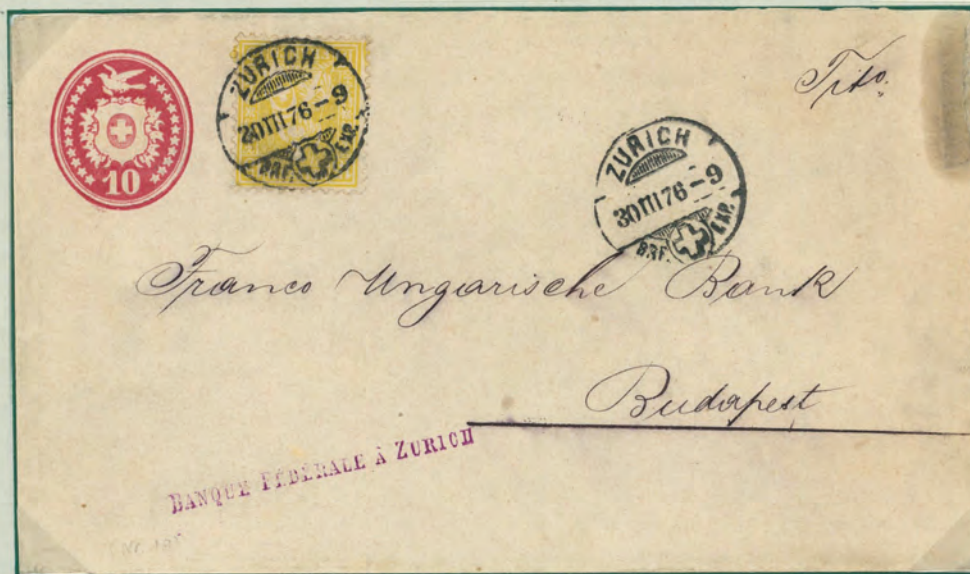 10
ZÜRICH
30 III 76 - 9
BRF. EXP.
ZÜRICH
30 III 76 - 9
BRF. EXP.
Franco Ungarische Bank
Budapest
BANQUE FÉDÉRALE À ZURICH